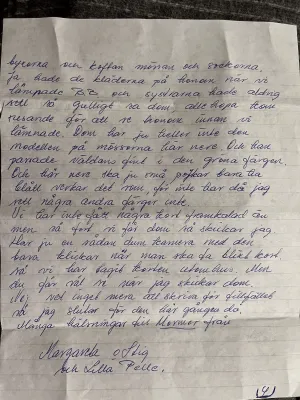 byxorna och koftan mössan och sockorna.
Ja hade de kläderna på honom när vi
lämnade BB och systrarna hade aldrig
sett så gulligt sa dom allihopa kom
rusande för att se honom innan vi
lämnade. Dom har ju heller inte den
modellen på mössorna här nere. Och han
passade väldans fint i den gröna färgen.
Och här nere ska ju små pojkar bara ha
blått verkar det som, för inte har då jag
sett några andra färger inte.
Vi har inte fått några kort framkallade än
men så fort vi får dom så skickar jag
Har ju en sådan dum kamera med den
bara klickar när man ska ta blixt kort.
så vi har tagit korten utomhus. Men
nu får väl vi när jag skickar dom.
Nej vet inget mera att skriva för tillfället
så jag slutar för den här gången då.
Många hälsningar till Mormor från
Margareta o Stig
och Lilla Pelle.
(4)